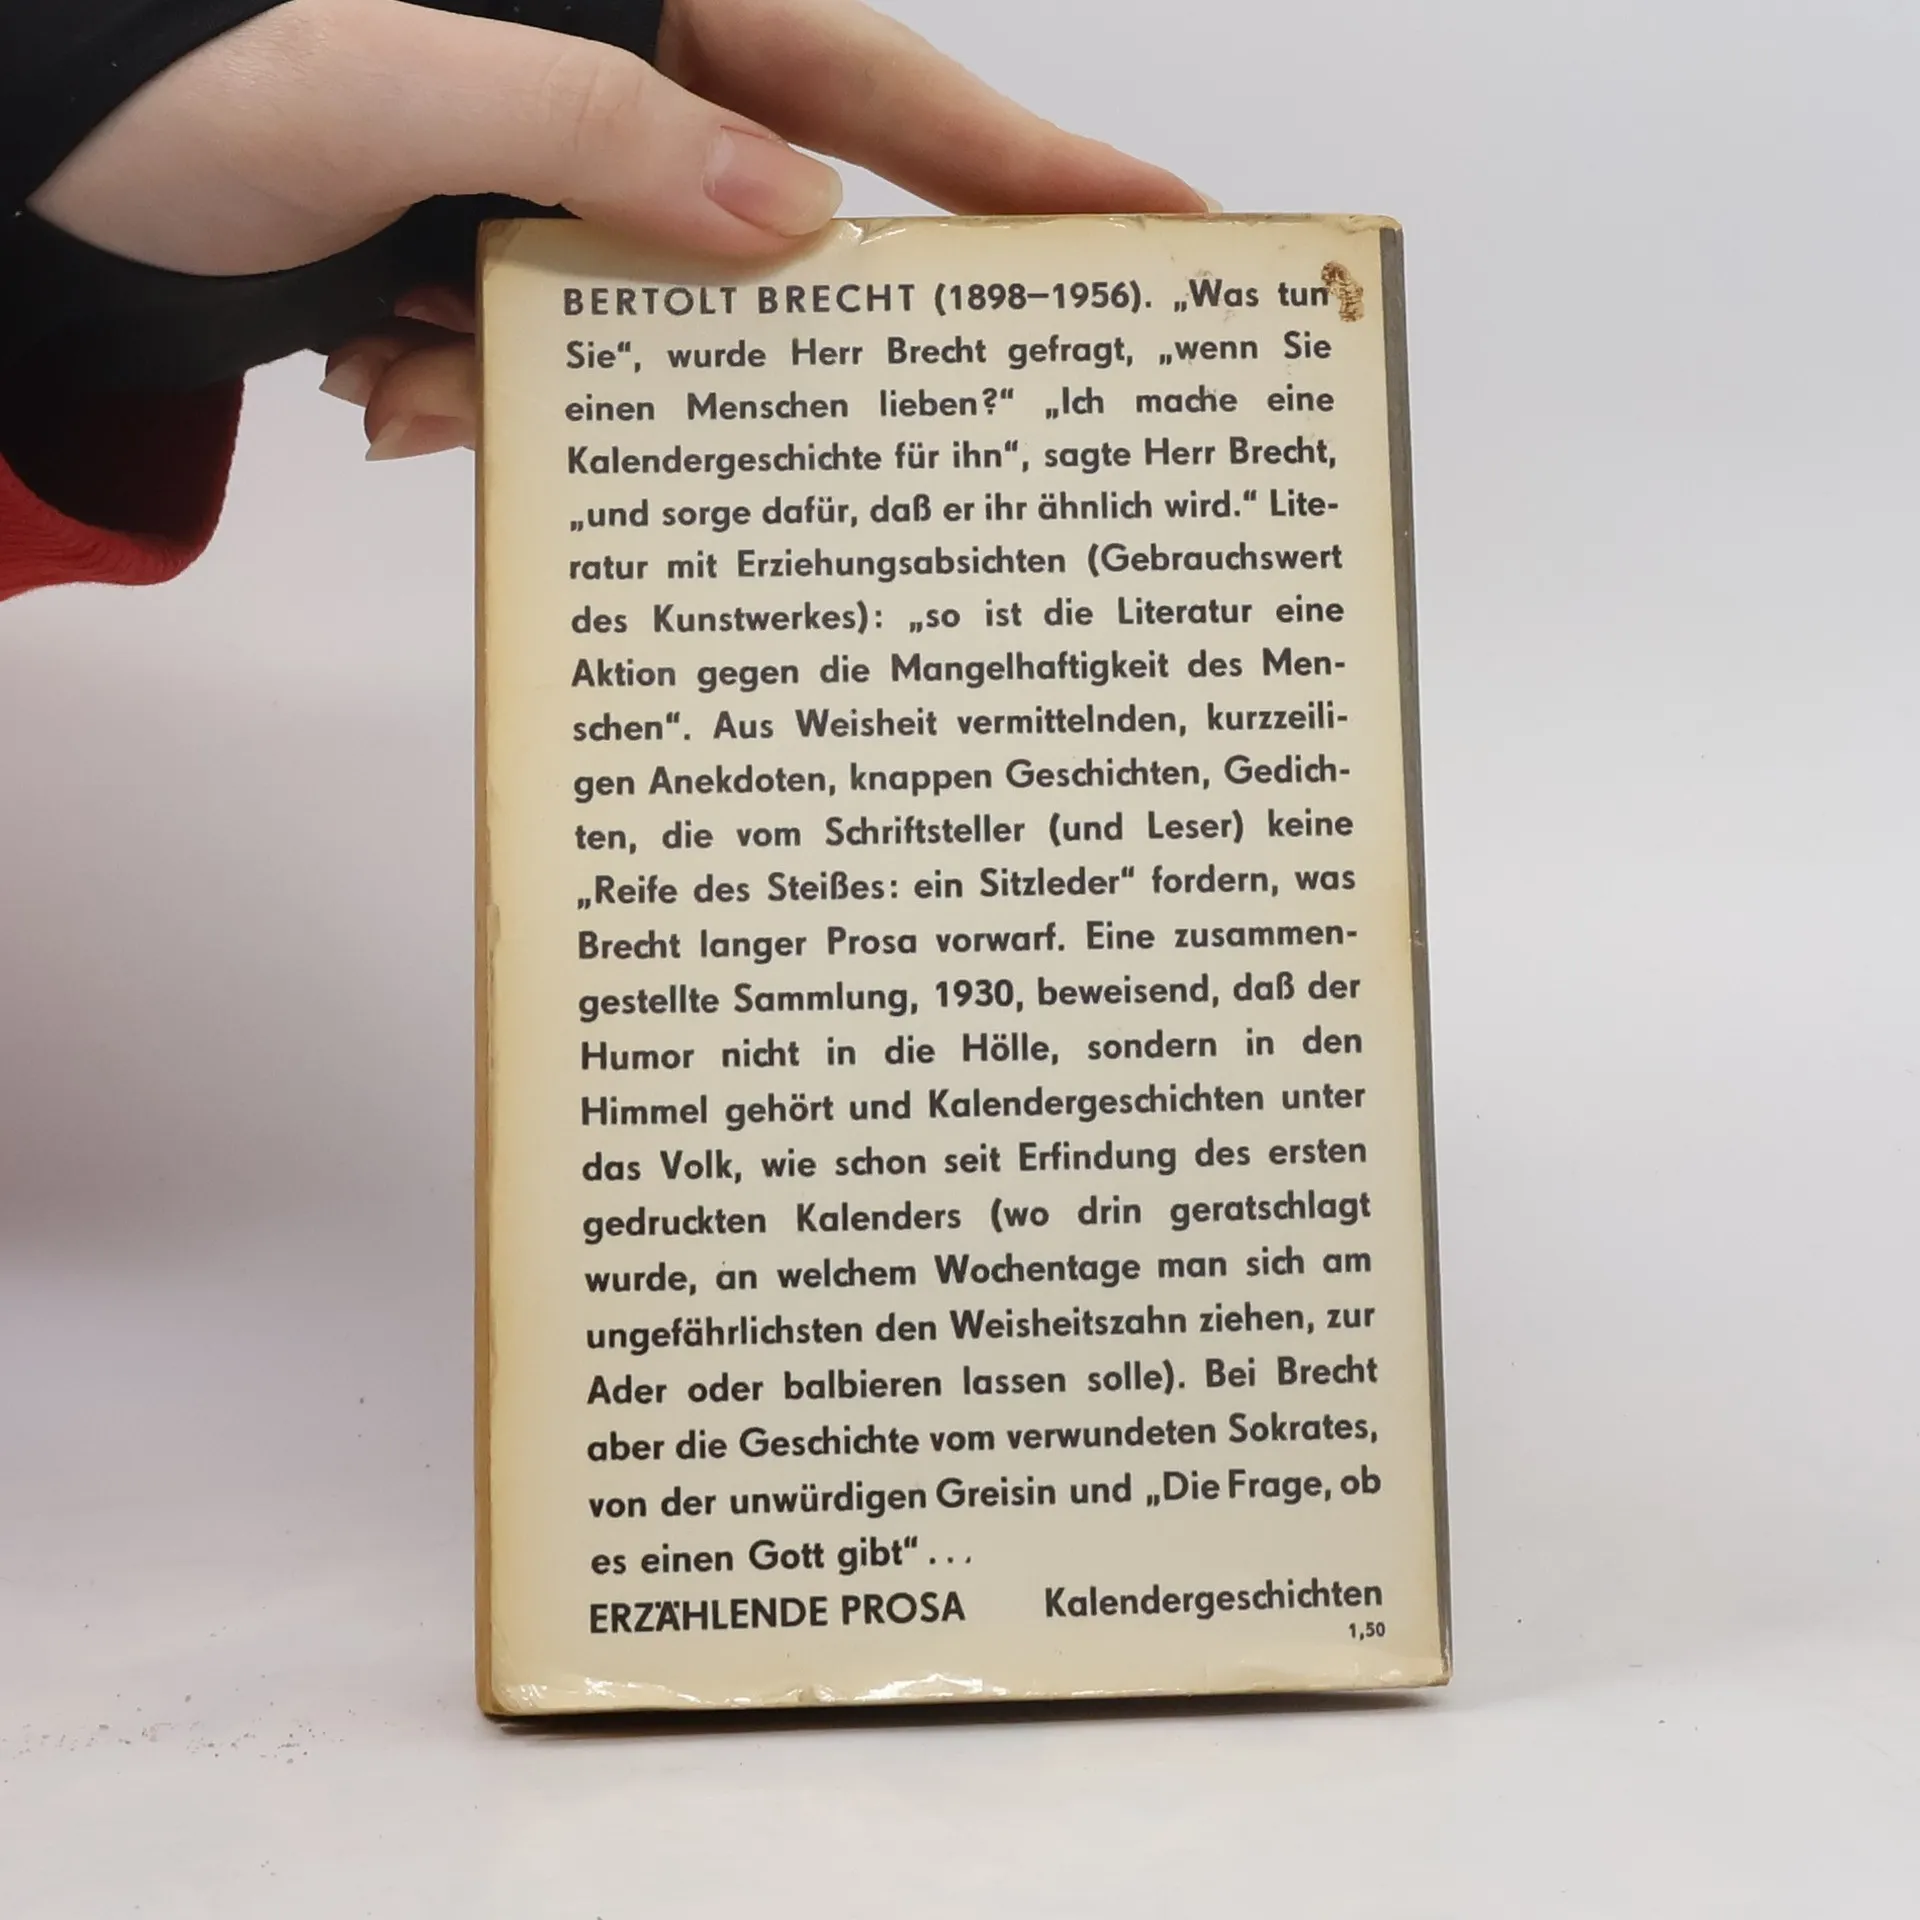 BERTOLT BRECHT (1898–1956). „Was tun
Sie“, wurde Herr Brecht gefragt, „wenn Sie
einen Menschen lieben?“ „Ich mache eine
Kalendergeschichte für ihn“, sagte Herr Brecht,
„und sorge dafür, daß er ihr ähnlich wird.“ Lite-
ratur mit Erziehungsabsichten (Gebrauchswert
des Kunstwerkes): „so ist die Literatur eine
Aktion gegen die Mangelhaftigkeit des Men-
schen“. Aus Weisheit vermittelnden, kurzzeili-
gen Anekdoten, knappen Geschichten, Gedich-
ten, die vom Schriftsteller (und Leser) keine
„Reife des Steißes: ein Sitzleder“ fordern, was
Brecht langer Prosa vorwarf. Eine zusammen-
gestellte Sammlung, 1930, beweisend, daß der
Humor nicht in die Hölle, sondern in den
Himmel gehört und Kalendergeschichten unter
das Volk, wie schon seit Erfindung des ersten
gedruckten Kalenders (wo drin geratschlagt
wurde, an welchem Wochentage man sich am
ungefährlichsten den Weisheitszahn ziehen, zur
Ader oder balbieren lassen solle). Bei Brecht
aber die Geschichte vom verwundeten Sokrates,
von der unwürdigen Greisin und „Die Frage, ob
es einen Gott gibt“ . . .
ERZÄHLENDE PROSA Kalendergeschichten
1,50